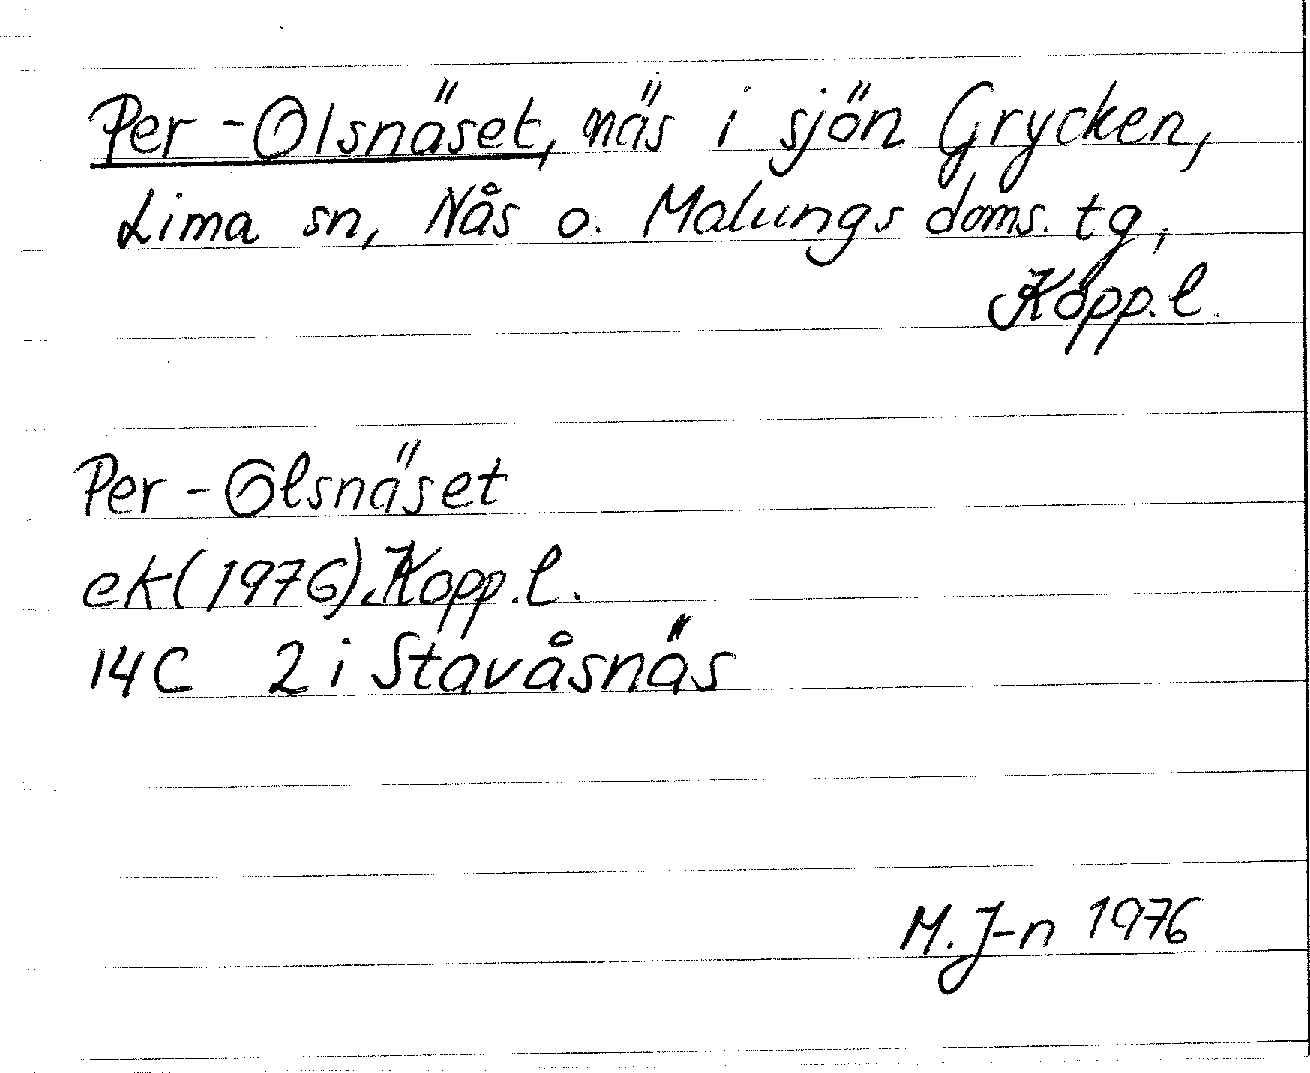 Per-Olsnäset, näs i sjön Grycken,
Lima sn, Nås o. Malungs doms. tg,
Kopp.l.
Per-Olsnäset
ek(1976).Kopp.l.
14C 2 i Stavåsnäs
M.J-n 1976